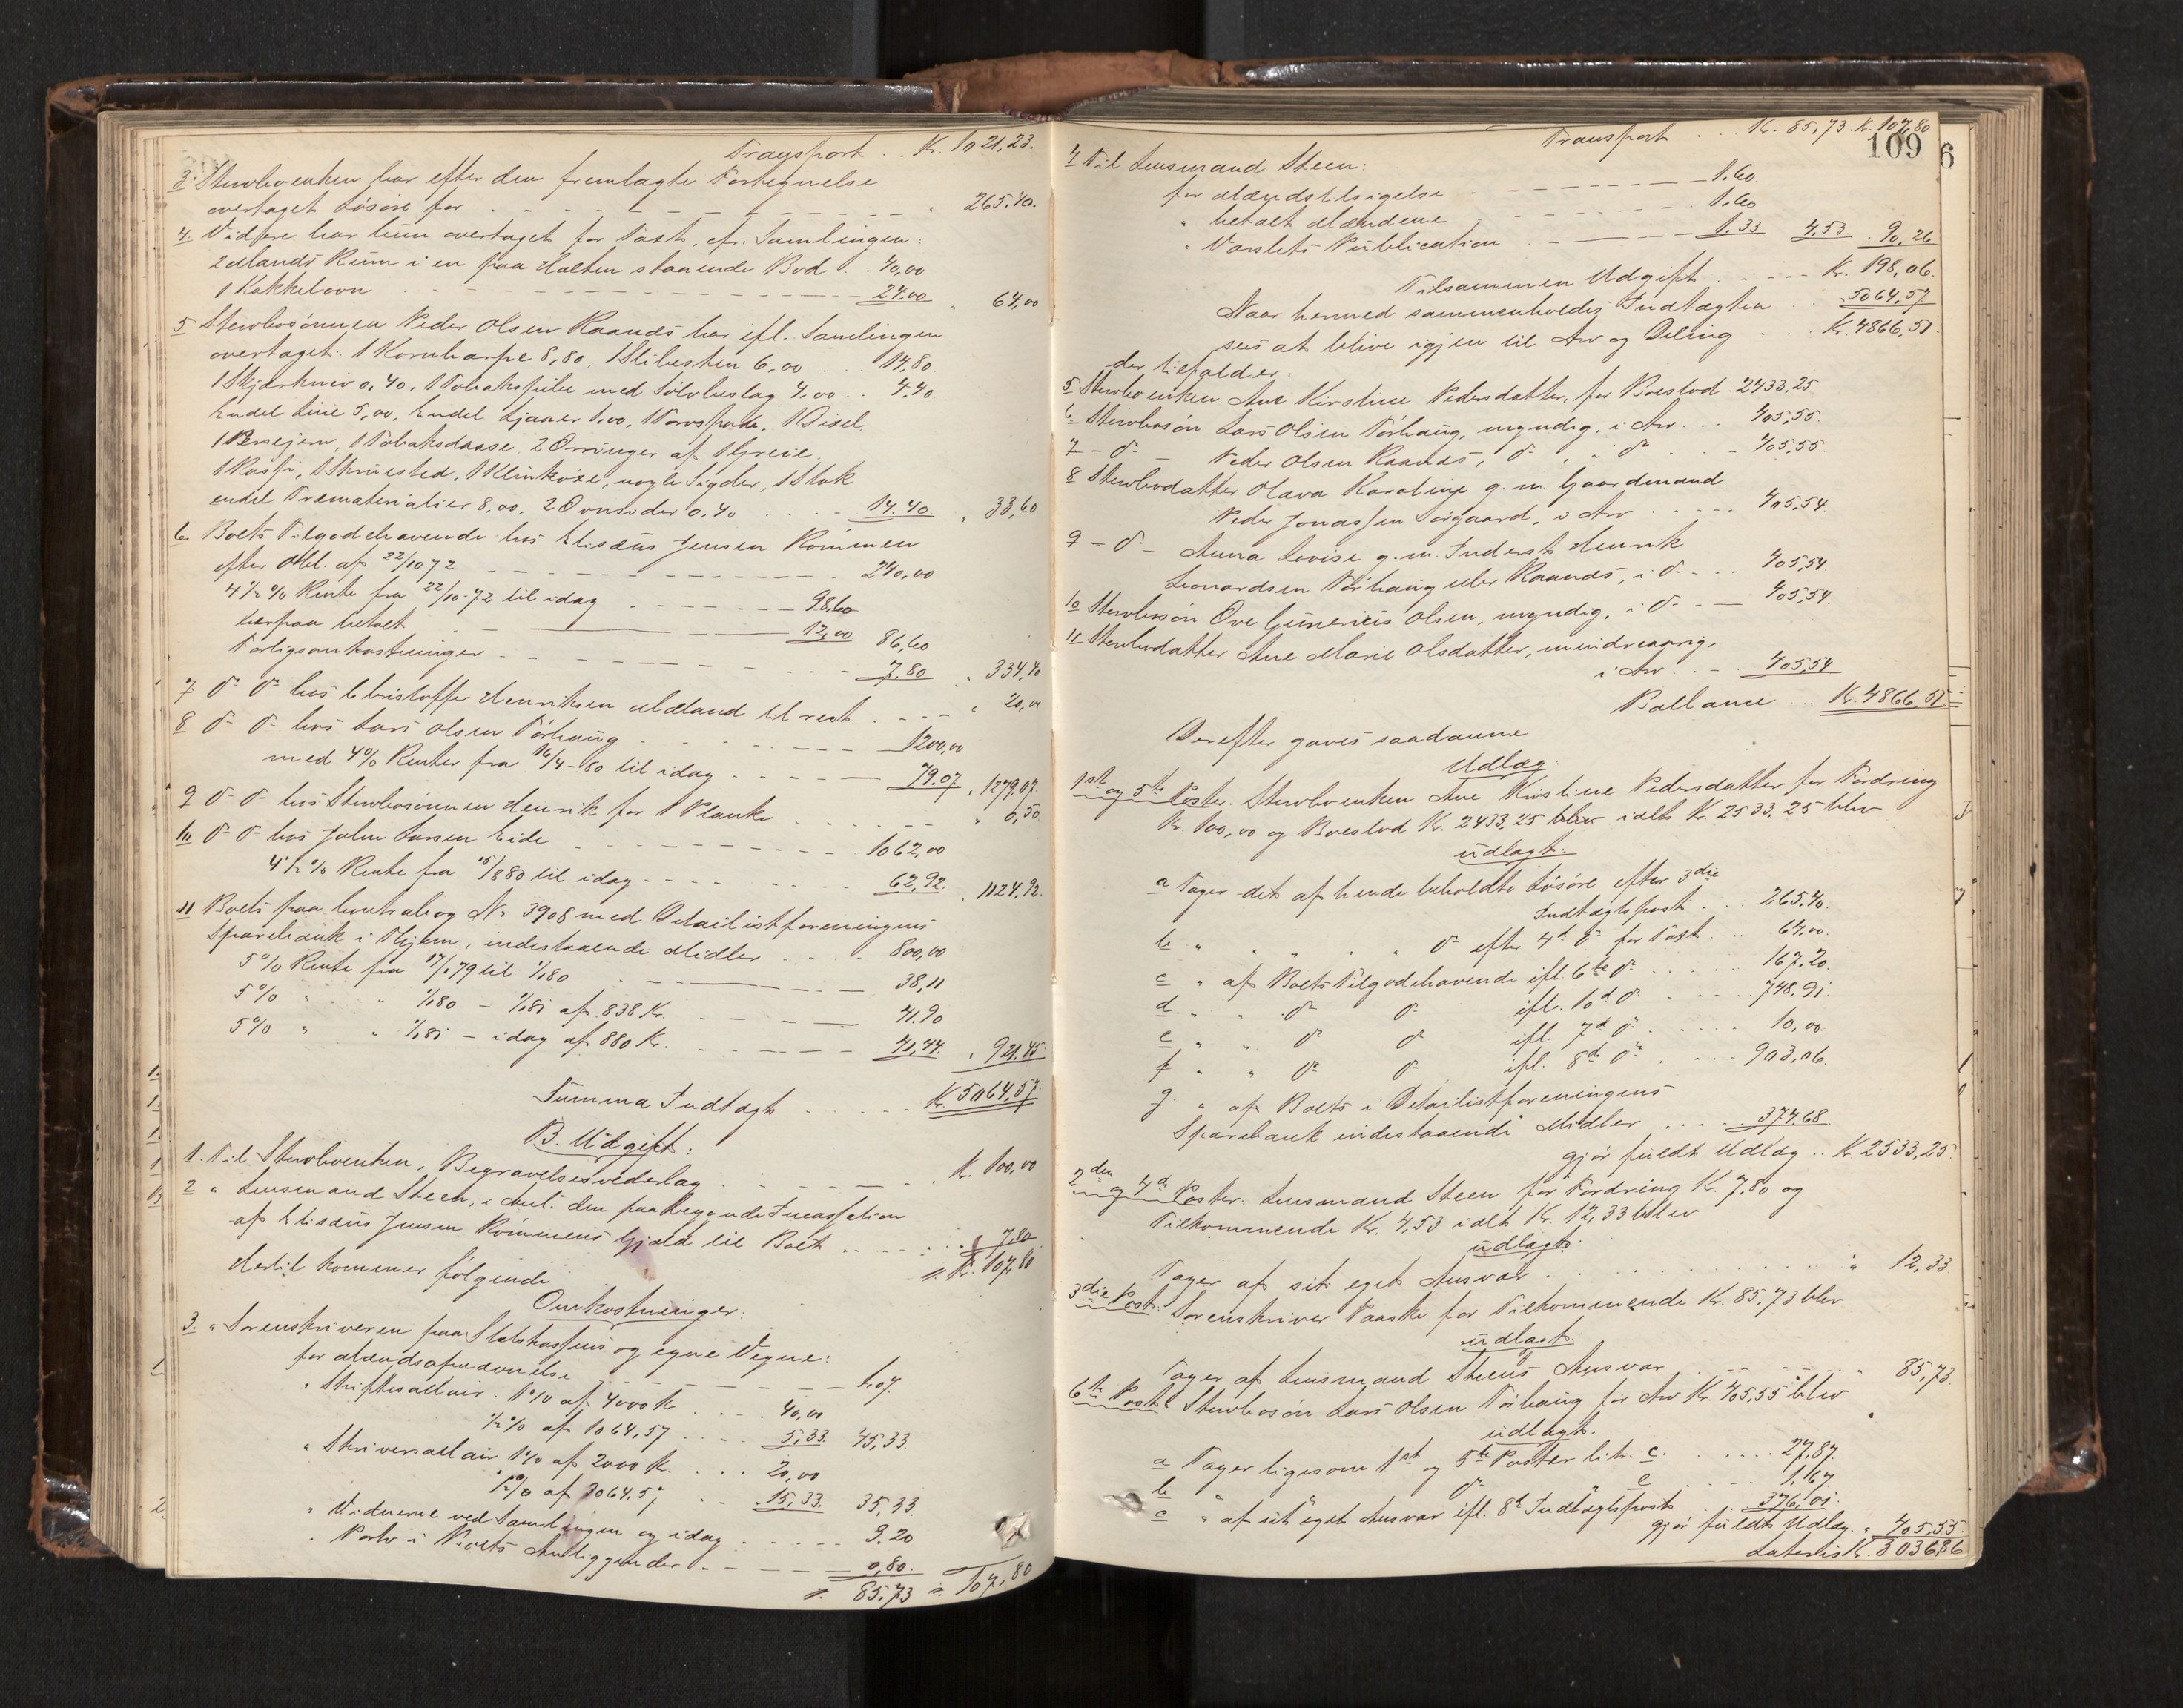 Transport . . Kr. 1021,23.
3. Stervboenken har efter den fremlagte Fortegnelse
overtaget Løsøre for . . . " 265.40.
4. Vidre har hun overtaget for Taxt, cfr. Samlingen:
2 Mands Rum i en paa Halten staaende Bod . . 40,00
1 Kakkelovn . . . 24.00 " 64,00
5 Stervbosønnen Peder Olsen Raanes har ifl. Samlingen
overtaget: 1 Kornharpe 8,80, 1 Slibesten 6,00 . . . 14,80
1 Skjærkniv 0,40, 1 Tobakspibe med Sølvbeslag 4,00 . . 4.40
Endel Line 5,00, Endel Ljaaer 1.00, 1 Torvspade, 1 Bisel,
1 Persejern, 1 Tobaksdaase, 2 Ørringer af 1 Greie,
1 , 1 Skruested, 1 , nogle Sigder, 1 Stok
endel Træmaterialier 8,00, 2 0,40 . . . 14.40 " 33,60
6. Boets Tilgodehavende hos Elisæus Jensen Rømmen
efter Obl. af 22/10 72 . . . 240,00
4½ % Rente fra 22/10-72 til idag . . . 98,60
herpaa betalt . . . 12,00 86,60
Forligsomkostninger . . . 7,80 " 334,40
7 do do hos Christoffer Henriksen Mæland til rest . . . " 20,00
8 do do hos Lars Olsen Tørhaug . . . 1200,00
med 4% Renter fra 16/4-80 til idag . . . 79.07 " 1279,07.
9 do do hos Stervbosønnen Henrik for 1 Planke . . . " 6,50
10 do do hos John Larsen Eide . . . 1062,00
4½ % Rente fra 15/8 80 til idag . . . 62,92 " 1124,92.
11 Boets paa Contrabog No 3908 med Detailistforeningens
Sparebank i Thjem, indestaaende Midler . . . 800,00
5% Rente fra 17/1 79 til 1/1 80 . . . 38,11
5% " " 1/1 80 – 1/1 81 af 838 Kr. . . . 41.90
5% " " 1/1 81 – idag af 880 Kr. . . . 41,44. " 921.45
Summa Indtægt . . . Kr. 5064,57.
B. Udgift:
1. Til Stervboenken, Begravelsesvederlag . . . Kr. 100,00
2 " Lensmand Steen, i Anl. den paabegyndte Incassation
af Elisæus Jensen Rømmens Gjæld til Boet . . . 7,80
Kr. 107,80
Hertil kommer følgende
Omkostninger.
3. " Sorenskriveren paa Statskassens og egne Vegne:
for Mændsopnævnelse . . . 1,07
" Skiftesallair. 1% af 4000 Kr . . . 40,00
½% af 1064,57 . . . 5,33. 45,33.
" Skriversallair 1% af 2000 Kr. . . . 20,00
½% af 3064,57 . . 15,33. 35,33.
" Vidnerne ved Samlingen og idag . . . 3.20
" Porto i Boets Anliggender . . . 0,80.
85,73 107,80
Transport . . Kr. 85,73. Kr. 107,80
109
6
4 Til Lensmand Steen:
for Mændstilsigelse . . . 1.60.
" betalt Mændene . . . 1.60
" Varslets Publication . . . 1.33 4,53. 90,26
Tilsammen Udgift . . . Kr. 198,06.
Naar hermed sammenholdes Indtægten . . . 5064,57
sees at blive igjen til Arv og Deling . . . Kr. 4866,51.
der tilfalder:
5 Stervboenken Ane Kirstine Pedersdatter, for Boeslod . 2433,25
6 Stervbosøn Lars Olsen Tørhaug, myndig, i Arv . . . 405,55.
7 – do – Peder Olsen Raanes, do , i do . . . 405,55.
8 Stervbodatter Olava Karoline g. m. Gaardmand
Peder Jonassen Sørgaard, i Arv . . . 405,54.
9 – do – Anna Lovise g. m. Inderst Henrik
Leonardsen Tørhaug eller Raanes, i do . . . 405,54.
10 Stervbosøn Ove Gunerius Olsen, myndig, i do . . . 405,54.
11 Stervbodatter Ane Marie Olsdatter, mindreaarig,
i Arv . . . 405,54
Ballance . . . Kr. 4866,51.
Derefter gaves saadanne
Udlæg:
1ste og 5te Poster. Stervboenken Ane Kirstine Pedersdatter for Fordring
Kr. 100,00 og Boeslod Kr. 2433,25 blev ialt Kr. 2533,25 blev
udlagt:
a Tager det af hende beholdte Løsøre efter 3die
Indtægtspost . . . 265.40.
b " " " " do efter 4de do for Taxt . . . 64,00.
c " af Boets Tilgodehavende ifl. 6te do . . . 167,20.
d " " do do ifl. 10de do . . . 748,91.
e " " do do ifl. 7de do . . . 10,00.
f " " do do ifl. 8de do . . . 903,06.
g. " af Boets i Detailistforeningens
Sparebank indestaaende Midler . . . 374,68
gjør fuldt Udlæg . . Kr. 2533,25.
2den og 4de Poster. Lensmand Steen for Fordring Kr. 7,80 og
Tilkommende Kr. 4,53 ialt Kr. 12,33 blev
udlagt:
Tager af sit eget Ansvar . . . " 12,33
3die Post. Sorenskriver Paaske for Tilkommende Kr. 85,73 blev
udlagt:
Tager af Lensmand Steens Ansvar . . . " 85,73.
6te Post. Stervbosøn Lars Olsen Tørhaug for Arv Kr. 405,55 blev
udlagt.
a Tager ligesom 1ste og 5te Poster litr. c. . . . 27,87.
b " do " e . . . 1,67.
c " af sit eget Ansvar ifl. 8de Indtægtspost . . 376,01.
gjør fuldt Udlæg . " 405,55.
Lateris Kr. 3036,86